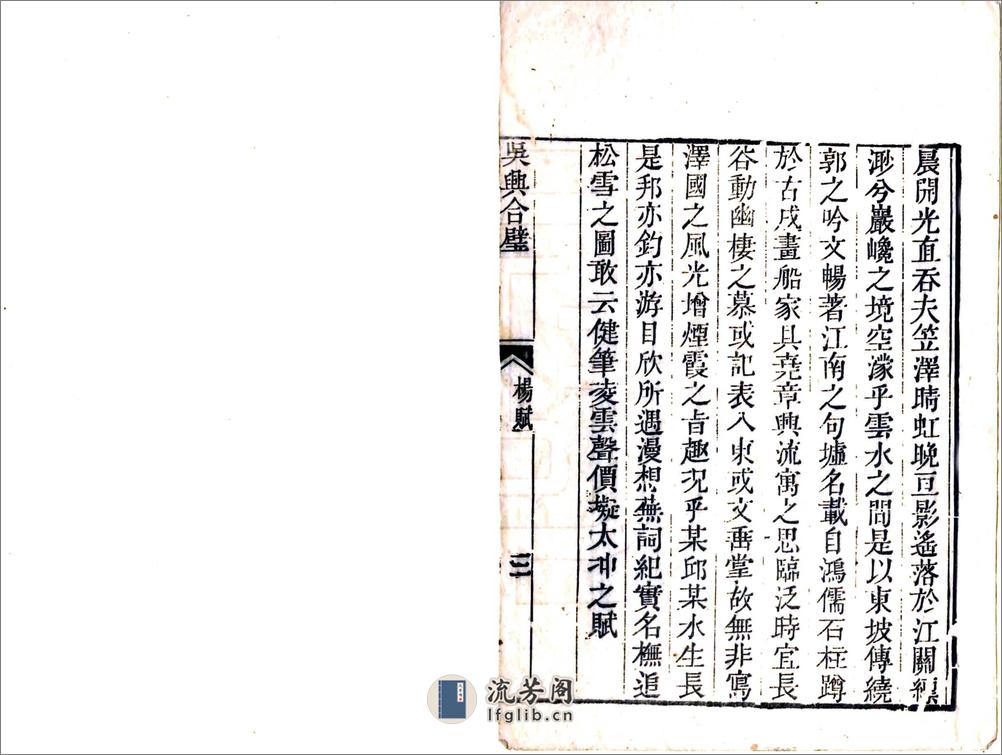 晨開光直吞夫笠澤晴虹晚亘影遙落於江關縹
渺兮巖巉之境空濛乎雲水之間是以東坡傳繞
郭之吟文暢著江南之句墟名載自鴻儒石柱蹲
於古戍畫船家具堯章興流寓之思臨泛時宜長
谷動幽棲之慕或記表入東或文垂堂故無非寫
澤國之風光增煙霞之旨趣况乎某邱某水生長
是邦亦釣亦游目欣所遇漫想蕪詞紀實名橅追
松雪之圖敢云健筆凌雲聲價擬太冲之賦
吳興合璧
楊賦
三
流芳阁
lfglib.cn